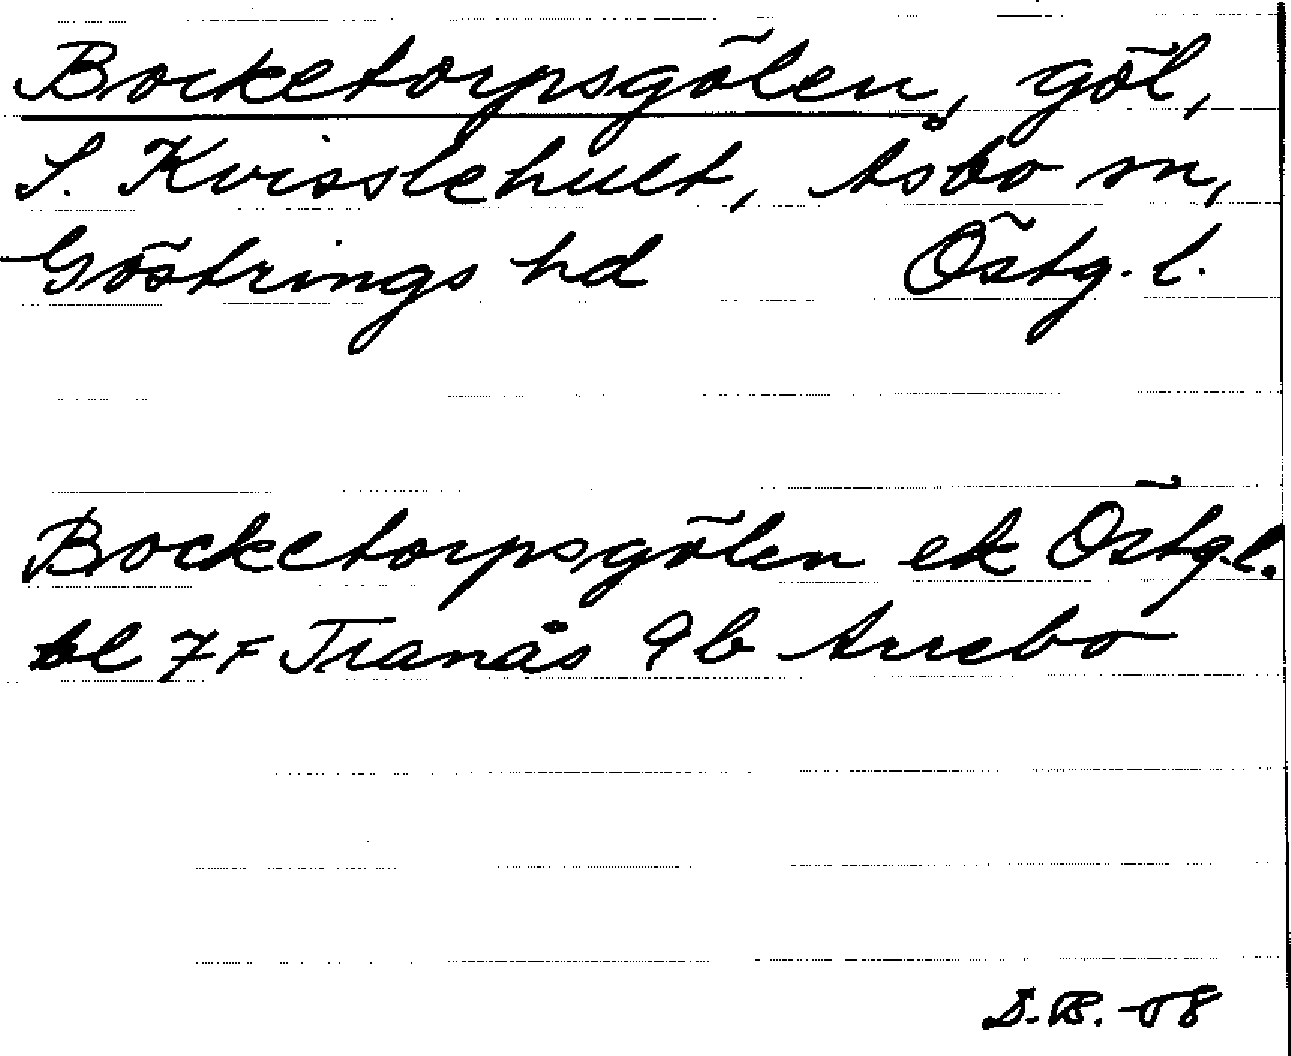 Bocketorpsgölen, göl,
S. Kvisslehult, Åsbo sn,
Göstrings hd Östg. l.
Bocketorpsgölen ek Östg.l.
bl 7F Tranås 9b Arrebo
S.B. -08